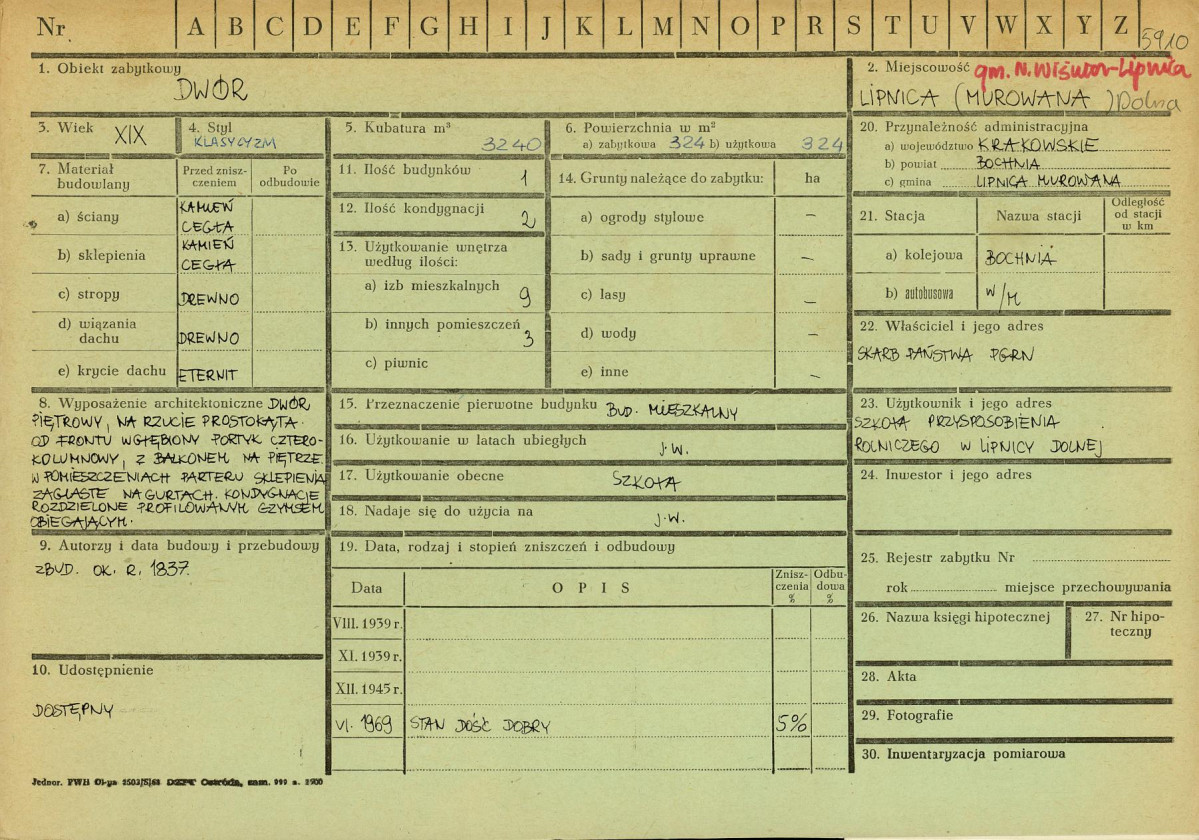 Nr A B C D E F G H I J K L M N O P R S T U V W X Y Z
5910
1. Obiekt zabytkowy
DWÓR
2. Miejscowość gm. N. Wiśnicz-Lipnica
LIPNICA (MUROWANA) Dolna
3. Wiek XIX
4. Styl
KLASYCYZM
5. Kubatura m³
3240
6. Powierzchnia w m²
a) zabytkowa 324 b) użytkowa 324
20. Przynależność administracyjna
a) województwo KRAKOWSKIE
b) powiat BOCHNIA
c) gmina LIPNICA MUROWANA
7. Materiał budowlany
Przed znisz-
czeniem
Po
odbudowie
a) ściany KAMIEŃ
CEGŁA
b) sklepienia KAMIEŃ
CEGŁA
c) stropy DREWNO
d) wiązania
dachu DREWNO
e) krycie dachu ETERNIT
11. Ilość budynków 1
12. Ilość kondygnacji 2
13. Użytkowanie wnętrza
według ilości:
a) izb mieszkalnych 9
b) innych pomieszczeń 3
c) piwnic
14. Grunty należące do zabytku: ha
a) ogrody stylowe –
b) sady i grunty uprawne –
c) lasy –
d) wody –
e) inne –
21. Stacja
Nazwa stacji
Odległość
od stacji
w km
a) kolejowa BOCHNIA
b) autobusowa W/M
22. Właściciel i jego adres
SKARB PAŃSTWA PGRN
8. Wyposażenie architektoniczne DWÓR
PIĘTROWY, NA RZUCIE PROSTOKĄTA.
OD FRONTU WGŁĘBIONY PORTYK CZTERO-
KOLUMNOWY, Z BALKONEM NA PIĘTRZE.
W POMIESZCZENIACH PARTERU SKLEPIENIA
ŻAGLASTE NA GURTACH. KONDYGNACJE
ROZDZIELONE PROFILOWANYM GZYMSEM
OBIEGAJĄCYM.
15. Przeznaczenie pierwotne budynku BUD. MIESZKALNY
16. Użytkowanie w latach ubiegłych J.W.
17. Użytkowanie obecne SZKOŁA
18. Nadaje się do użycia na J.W.
23. Użytkownik i jego adres
SZKOŁA PRZYSPOSOBIENIA
ROLNICZEGO W LIPNICY DOLNEJ
24. Inwestor i jego adres
9. Autorzy i data budowy i przebudowy
ZBUD. OK. R. 1837.
19. Data, rodzaj i stopień zniszczeń i odbudowy
Data
OPIS
Znisz-
czenia
%
Odbu-
dowa
%
VIII. 1939 r.
XI. 1939 r.
XII. 1945 r.
VI. 1969 STAN DOŚĆ DOBRY 5%
10. Udostępnienie
DOSTĘPNY
25. Rejestr zabytku Nr
rok miejsce przechowywania
26. Nazwa księgi hipotecznej
27. Nr hipo-
teczny
28. Akta
29. Fotografie
30. Inwentaryzacja pomiarowa
Jednor. PWH Ol-ya 2503/S/68 DZPT Ostróda, zam. 999 n. 2500